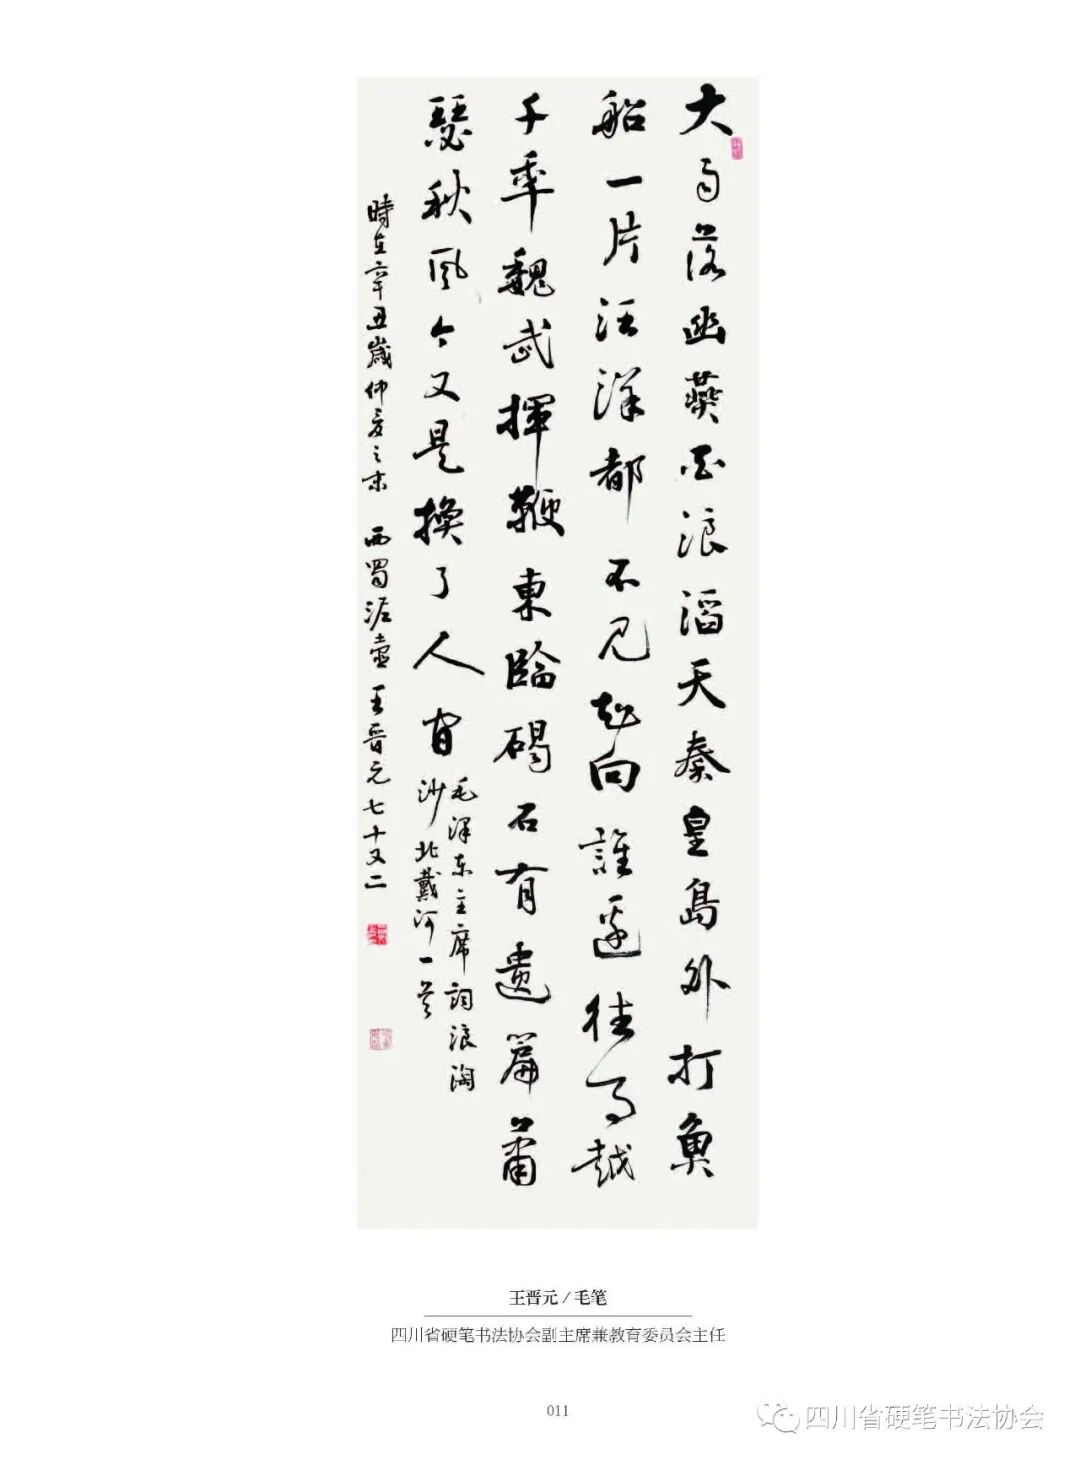 大雨落幽燕白浪滔天秦皇島外打魚
船一片汪洋都不見知向誰邊往事越
千年魏武揮鞭東臨碣石有遺篇蕭
瑟秋風今又是換了人間
毛泽东主席詞浪淘
沙北戴河一首
時在辛丑歲仲夏之末 西蜀 壺 王晉元七十又二
王晋元/毛笔
四川省硬笔书法协会副主席兼教育委员会主任
011
四川省硬笔书法协会